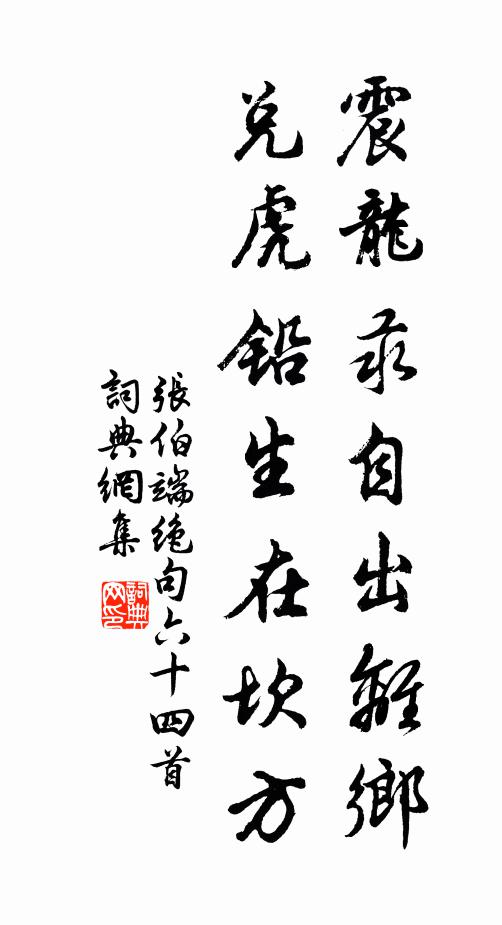 震龍汞自出離鄉
兌虎鉛生在坎方
張伯端絕句六十四首
詞典網集
詞典网印